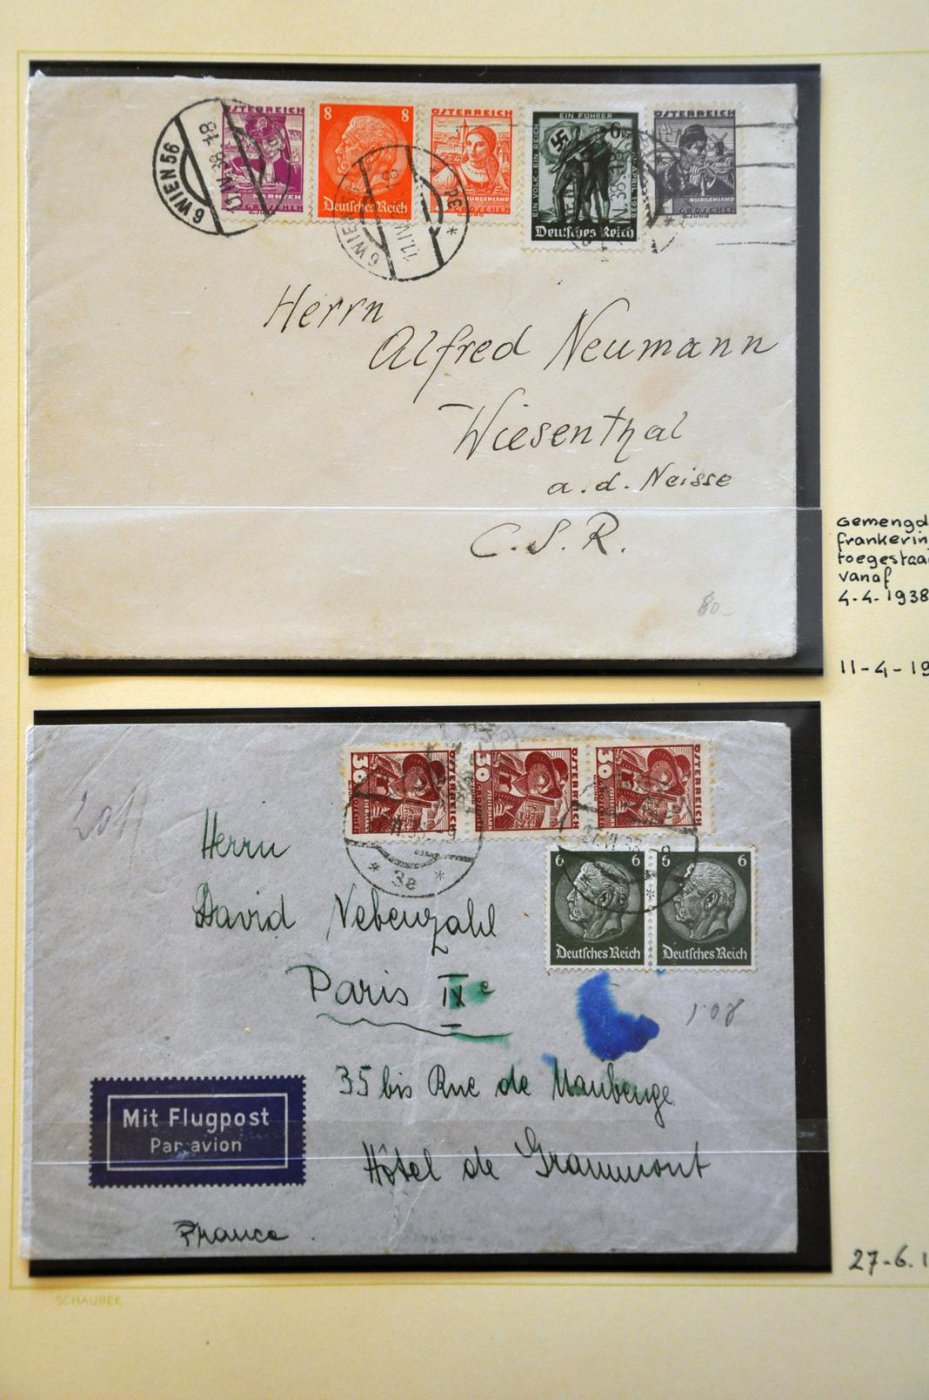 ÖSTERREICH
KÄRNTEN
GROSCHEN
8 8
Deutsches Reich
ÖSTERREICH
BURGENLAND
GROSCHEN
EIN FÜHRER
EIN VOLK · EIN REICH
6
Deutsches Reich
ÖSTERREICH
BURGENLAND
GROSCHEN
6 WIEN 56
6 WIEN
Herrn
Alfred Neumann
Wiesenthal
a. d. Neisse
C. S. R.
80-
Gemengd
frankerin
toegestaa
vanaf
4-4-1938
11-4-19
30 ÖSTERREICH
30 ÖSTERREICH
30 ÖSTERREICH
* 3e *
6 6
Deutsches Reich
6 6
Deutsches Reich
Herrn
David Nebenzahl
Paris IXe
1·08
35 bis Rue de Maubeuge
Hôtel de Grammont
Mit Flugpost
Par avion
France.
27-6.1
SCHAUBEK